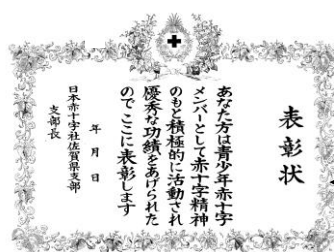 表彰状
あなた方は青少年赤十字
メンバーとして赤十字精神
のもと積極的に活動され
優秀な功績をあげられた
ので ここに表彰します
年 月 日
日本赤十字社佐賀県支部
支部長